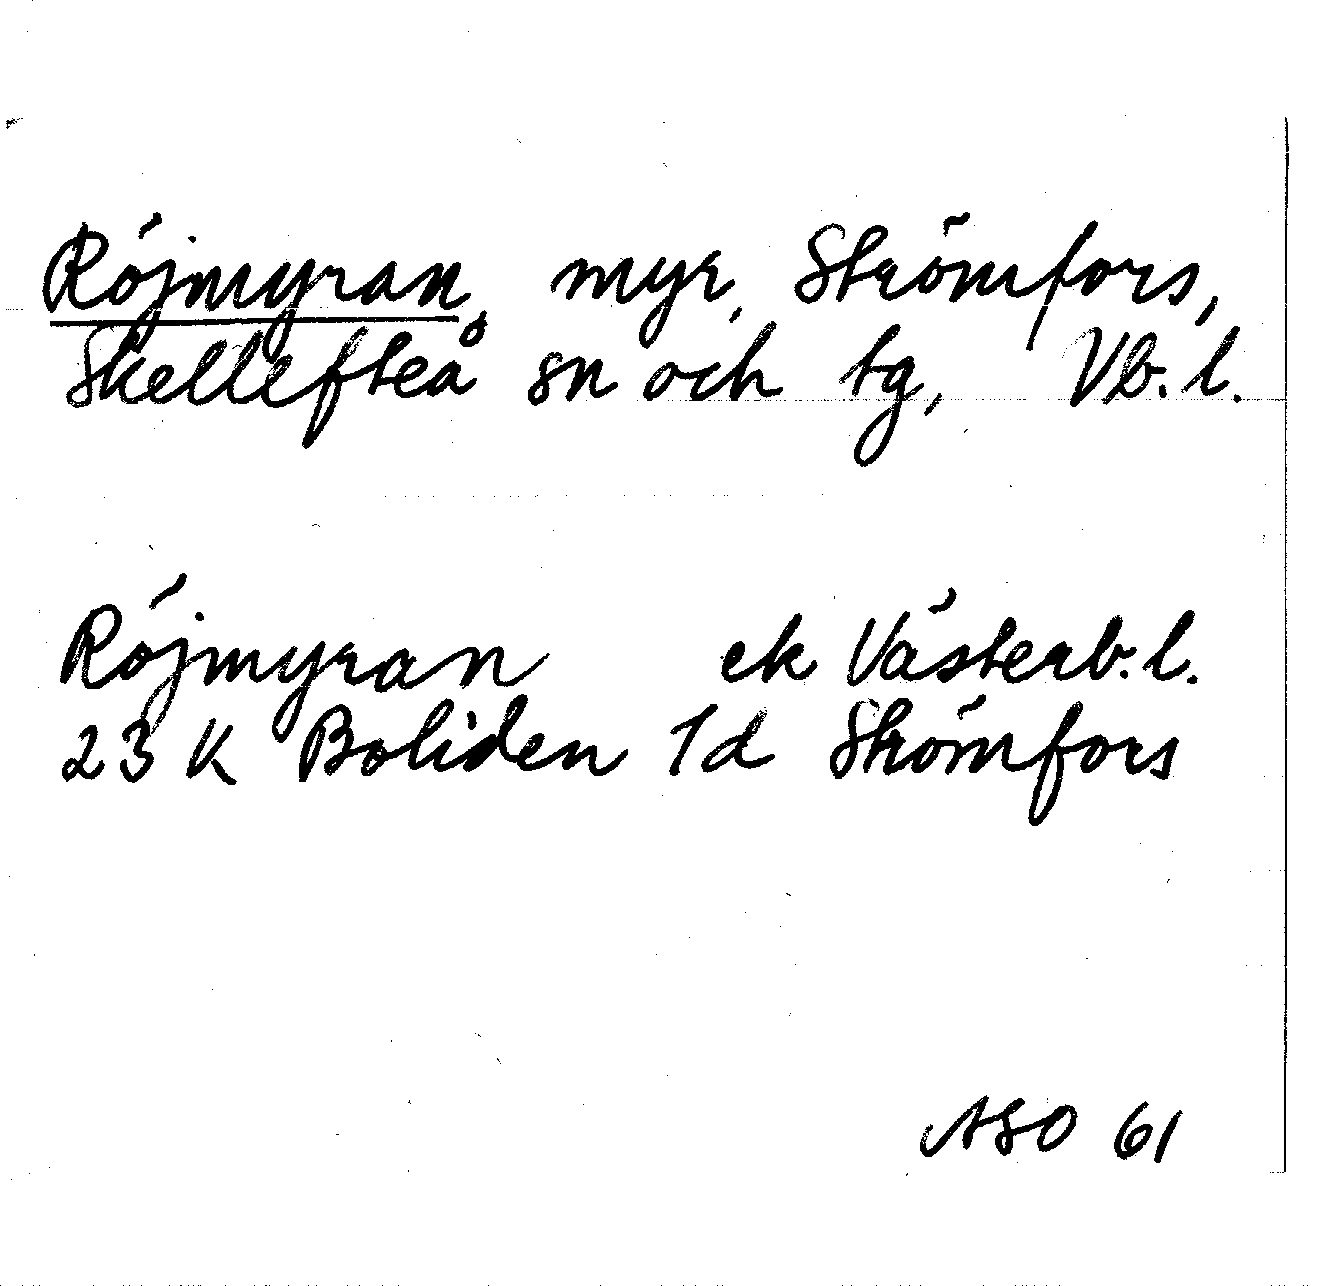 Röjmyran, myr, Strömfors,
Skellefteå sn och tg, Vb. l.
Röjmyran ek Västerb. l.
23 K Boliden 1d Strömfors
ASO 61